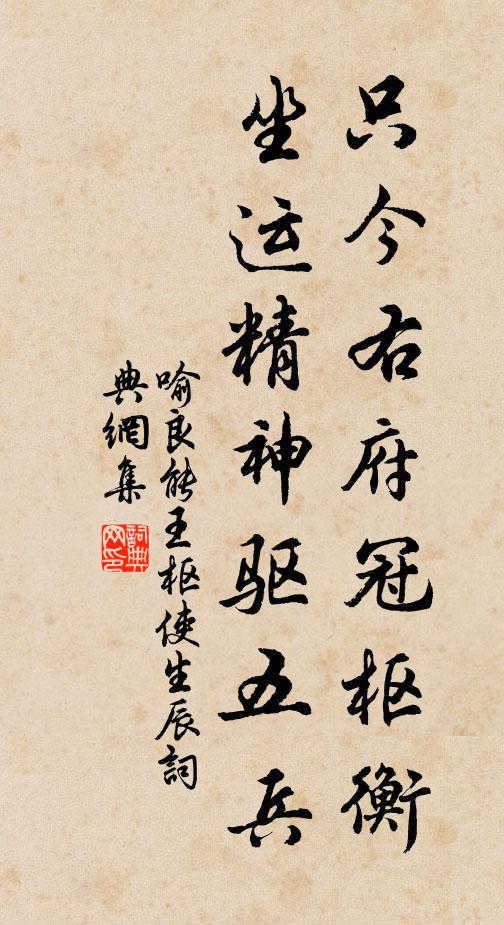 只今右府冠枢衡
坐运精神驱五兵
喻良能王枢使生辰詞
典網集
詞典网印